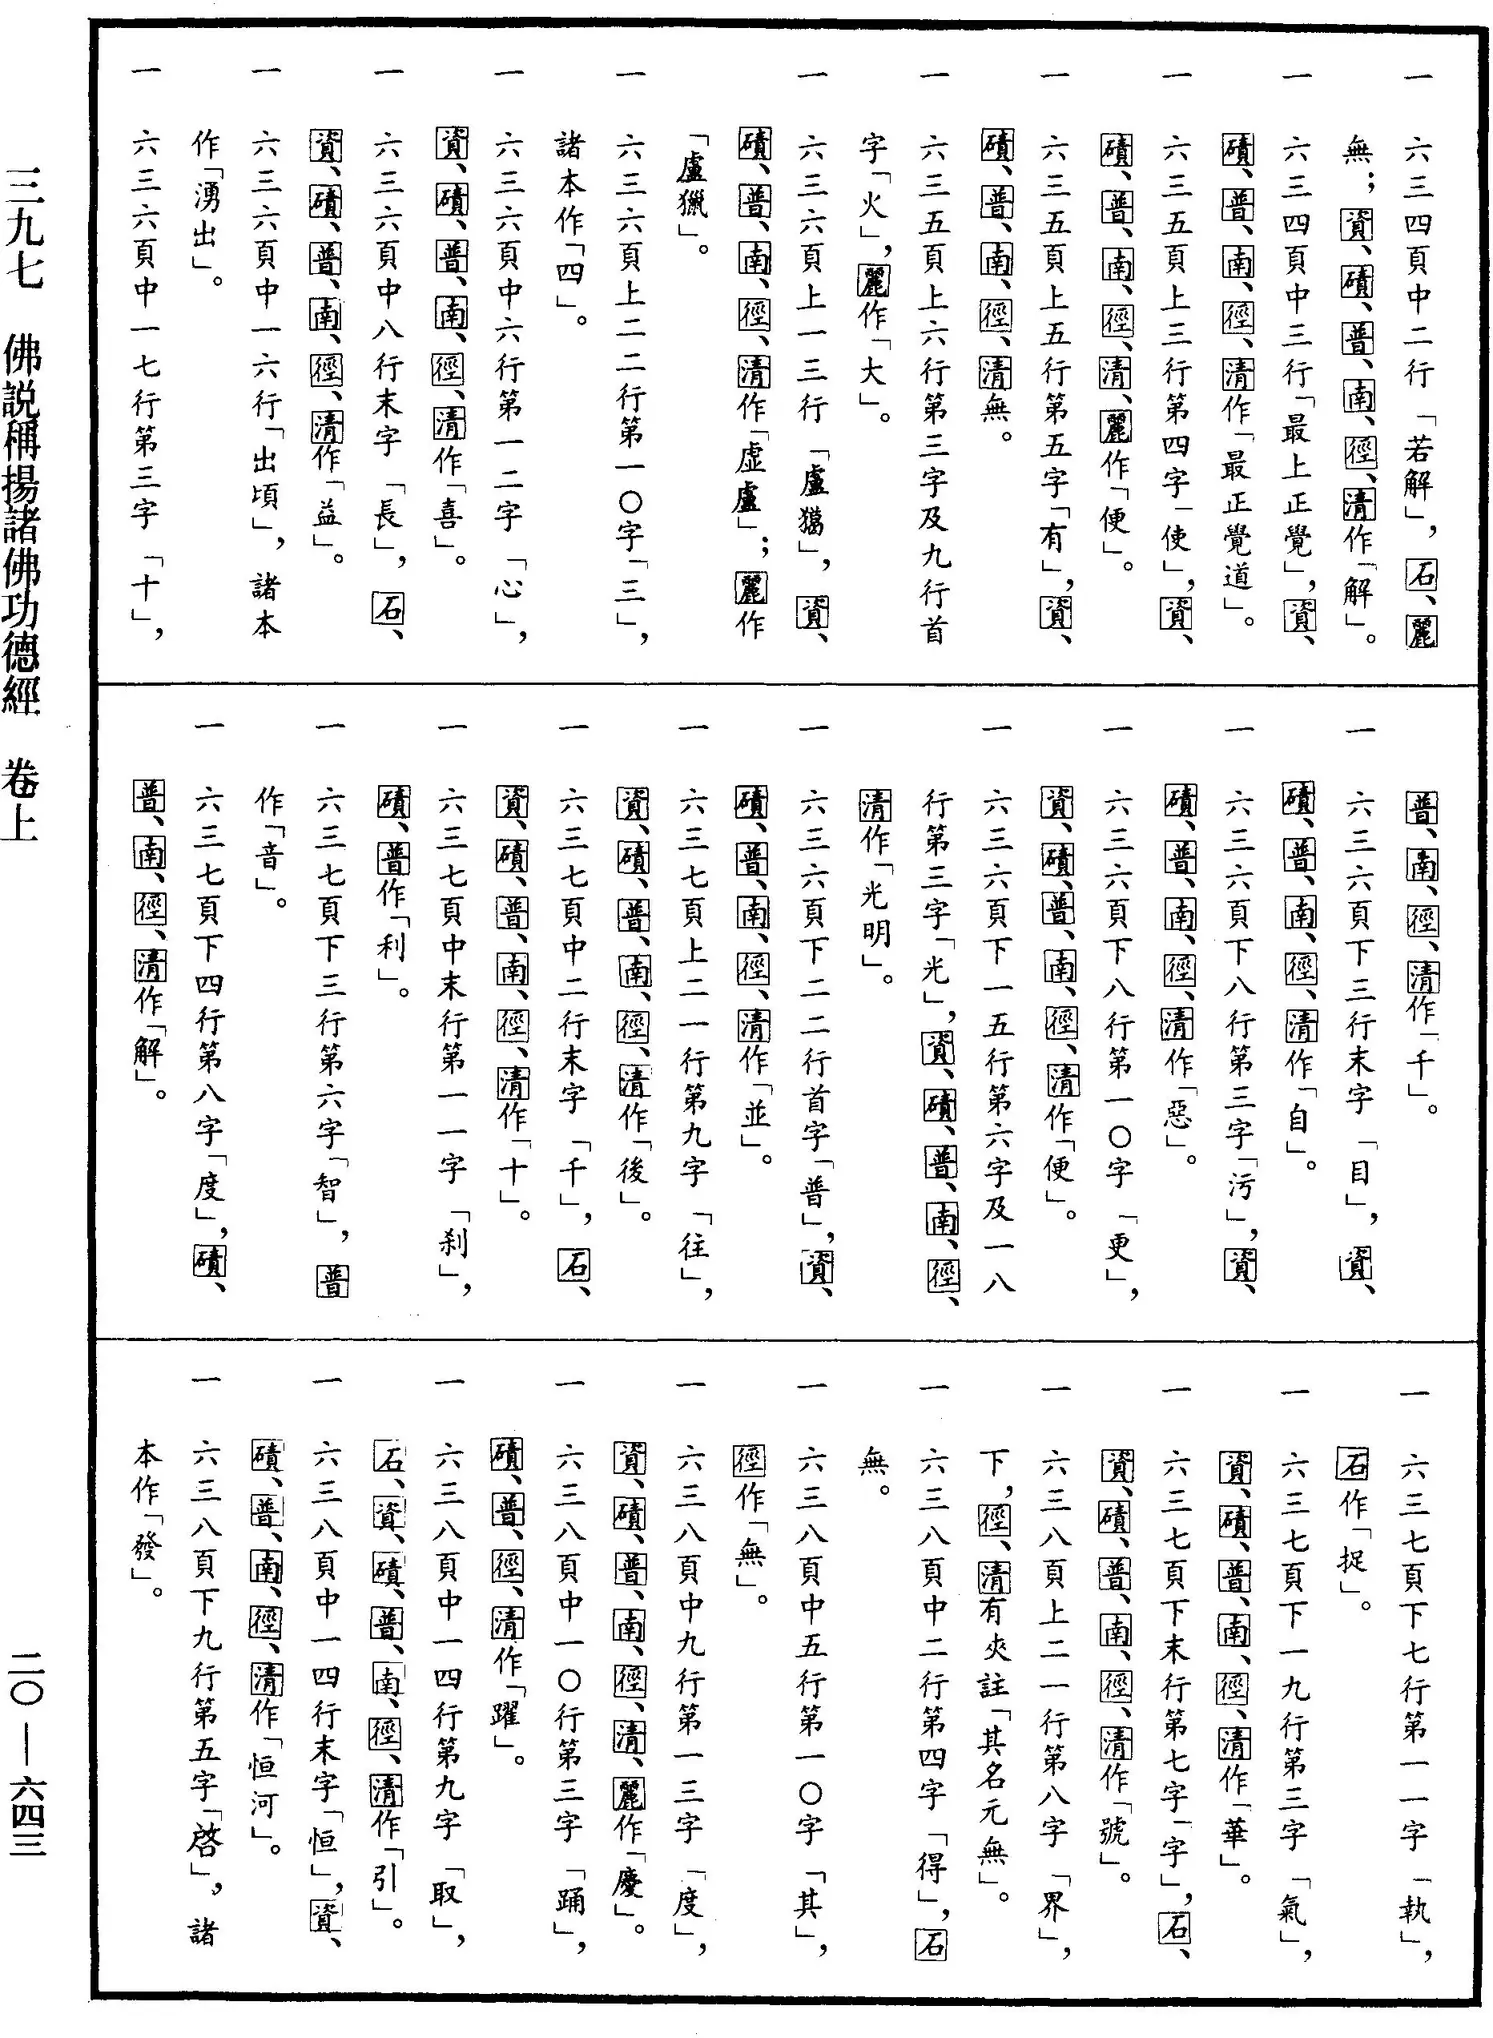 一　六三四頁中二行「若解」，石、麗
無；資、磧、普、南、徑、清作「解」。
一　六三四頁中三行「最上正覺」，資、
磧、普、南、徑、清作「最正覺道」。
一　六三五頁上三行第四字「使」，資、
磧、普、南、徑、清、麗作「便」。
一　六三五頁上五行第五字「有」，資、
磧、普、南、徑、清無。
一　六三五頁上六行第三字及九行首
字「火」，麗作「大」。
一　六三六頁上一三行「盧獦」，資、
磧、普、南、徑、清作「虛盧」；麗作
「盧獵」。
一　六三六頁上二二行第一〇字「三」，
諸本作「四」。
一　六三六頁中六行第一二字「心」，
資、磧、普、南、徑、清作「喜」。
一　六三六頁中八行末字「長」，石、
資、磧、普、南、徑、清作「益」。
一　六三六頁中一六行「出頃」，諸本
作「湧出」。
一　六三六頁中一七行第三字「十」，
普、南、徑、清作「千」。
一　六三六頁下三行末字「目」，資、
磧、普、南、徑、清作「自」。
一　六三六頁下八行第三字「污」，資、
磧、普、南、徑、清作「惡」。
一　六三六頁下八行第一〇字「更」，
資、磧、普、南、徑、清作「便」。
一　六三六頁下一五行第六字及一八
行第三字「光」，資、磧、普、南、徑、
清作「光明」。
一　六三六頁下二二行首字「普」，資、
磧、普、南、徑、清作「並」。
一　六三七頁上二一行第九字「往」，
資、磧、普、南、徑、清作「後」。
一　六三七頁中二行末字「千」，石、
資、磧、普、南、徑、清作「十」。
一　六三七頁中末行第一一字「刹」，
磧、普作「利」。
一　六三七頁下三行第六字「智」，普
作「音」。
一　六三七頁下四行第八字「度」，磧、
普、南、徑、清作「解」。
一　六三七頁下七行第一一字「執」，
石作「捉」。
一　六三七頁下一九行第三字「氣」，
資、磧、普、南、徑、清作「華」。
一　六三七頁下末行第七字「字」，石、
資、磧、普、南、徑、清作「號」。
一　六三八頁上二一行第八字「界」，
下，徑、清有夾註「其名元無」。
一　六三八頁中二行第四字「得」，石
無。
一　六三八頁中五行第一〇字「其」，
徑作「無」。
一　六三八頁中九行第一三字「度」，
資、磧、普、南、徑、清、麗作「慶」。
一　六三八頁中一〇行第三字「踊」，
磧、普、徑、清作「躍」。
一　六三八頁中一四行第九字「取」，
石、資、磧、普、南、徑、清作「引」。
一　六三八頁中一四行末字「恒」，資、
磧、普、南、徑、清作「恒河」。
一　六三八頁下九行第五字「啓」，諸
本作「發」。
三九七　佛説稱揚諸佛功德經　卷上
二〇—六四三